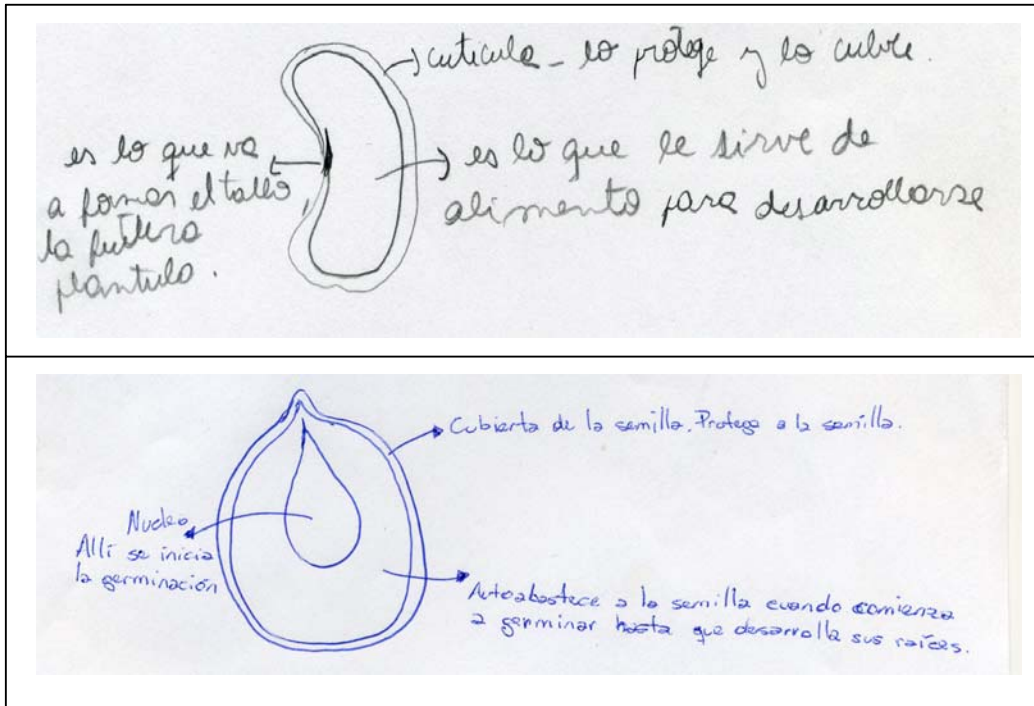 cuticula - lo protege y lo cubre.
es lo que va
a formar el tallo,
la futura
plantula.
es lo que le sirve de
alimento para desarrollarse
Cubierta de la semilla. Protege a la semilla.
Nucleo
Allí se inicia
la germinación
Autoabastece a la semilla cuando comienza
a germinar hasta que desarrolla sus raíces.